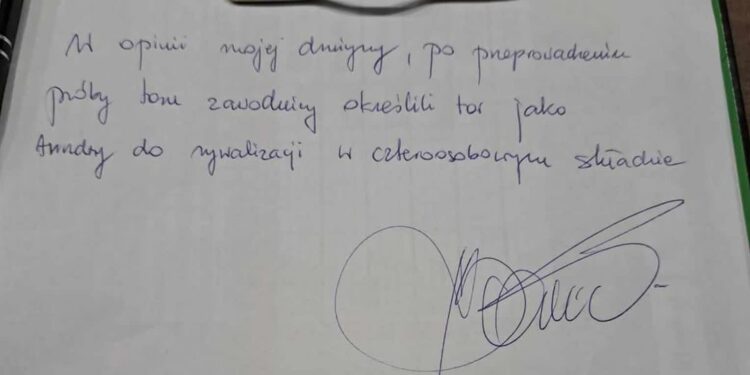 W opinii mojej drużyny, po przeprowadzeniu
próby toru zawodnicy określili tor jako
trudny do rywalizacji w czteroosobowym składzie